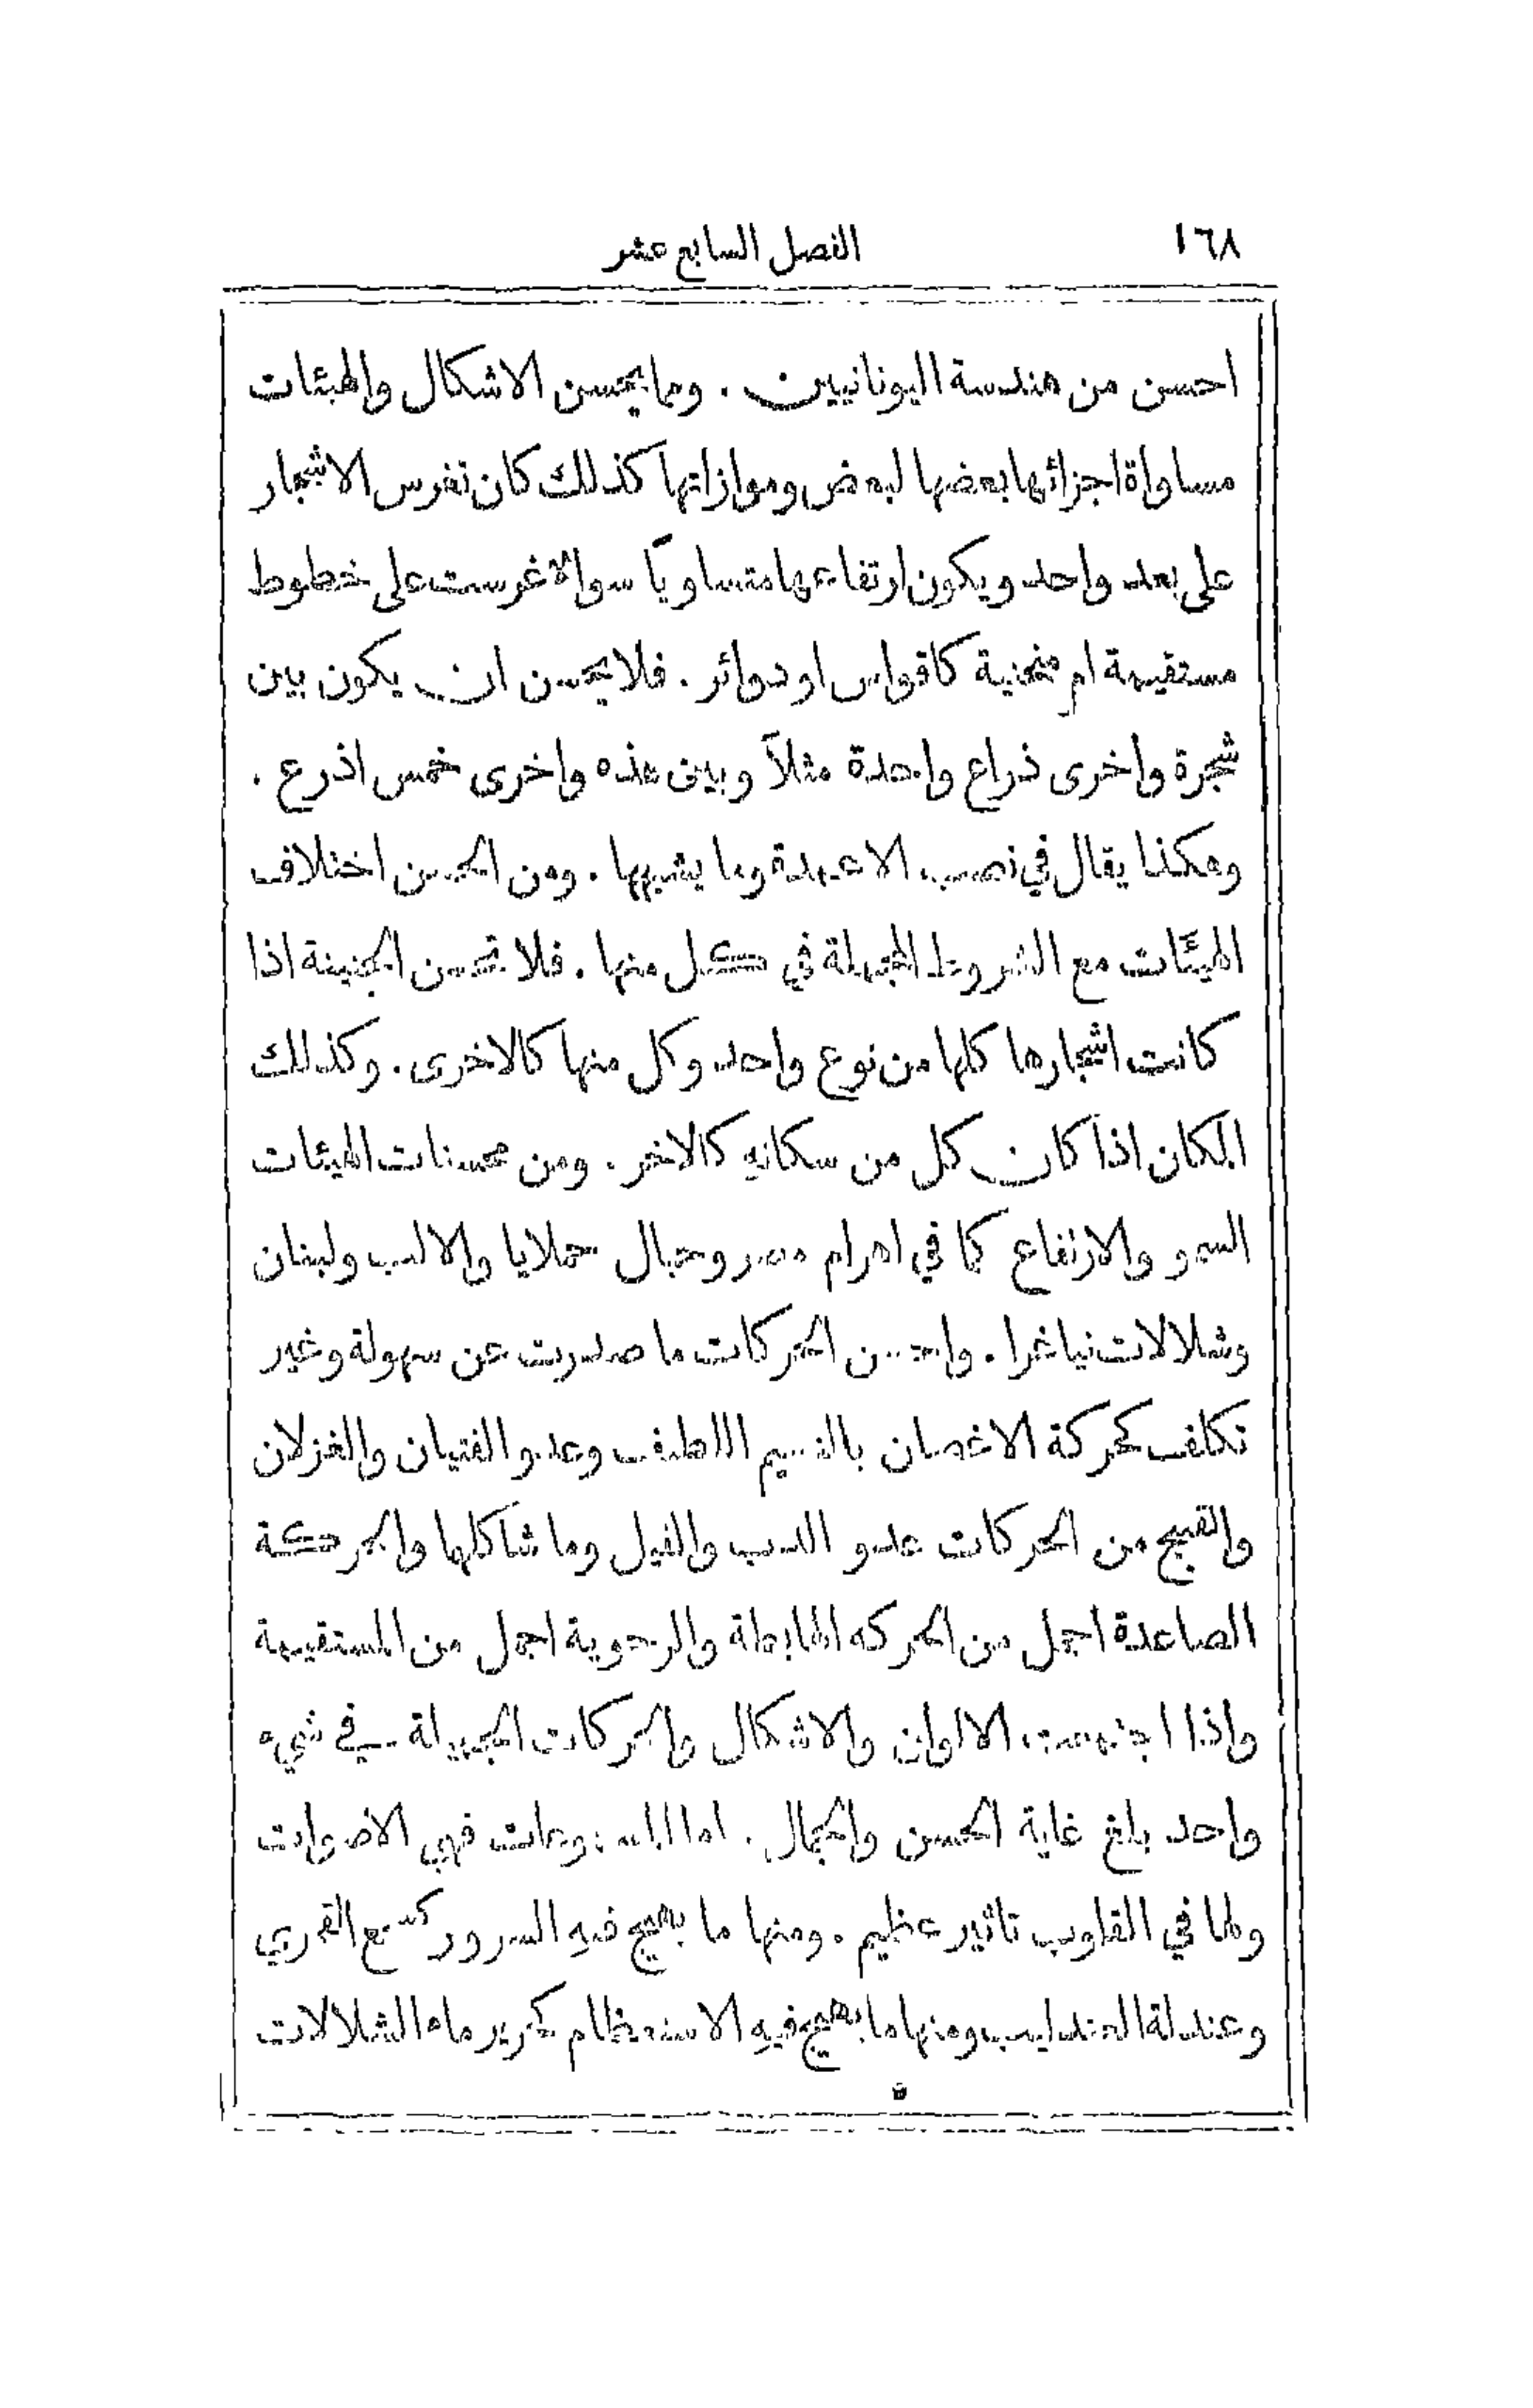 ١٦٨
الفصل السابع عشر
احسن من هندسة اليونانيين . ومما يحسن الاشكال والهيئات
مساواة اجزائها بعضها لبعض وموازاتها كذلك كان تغرس الاشجار
على بعد واحد ويكون ارتفاعها متساوياً سوالا غرست على خطوط
مستقيمة ام منحنية كاقواس او دوائر . فلا يحسن ان يكون بين
شجرة واخرى ذراع واحدة مثلاً وبين هذه واخرى خمس اذرع .
وهكذا يقال في نصب الاعمدة وما يشبهها . ومن الحسن اختلاف
الهيئات مع الشروط المجملة في كل منها . فلا تحسن الجنينة اذا
كانت اشجارها كلها من نوع واحد وكل منها كالاخرى . وكذلك
المكان اذا كان كل من سكانهِ كالاخر . ومن محسنات الهيئات
السمو والارتفاع كما في اهرام مصر وجبال حملايا والالب ولبنان
وشلالات نياغرا . واحسن الحركات ما صدرت عن سهولة وغير
تكلف كحركة الاغصان بالنسيم اللطيف وعدو الفتيان والغزلان
والقبيح من الحركات عدو الدب والفيل وما شاكلها والحركة
الصاعدة اجمل من الحركه الهابطة والرحوية اجمل من المستقيمة
واذا اجتمعت الالوان والاشكال والحركات الجميلة في شيء
واحد بلغ غاية الحسن والجمال . اما المسموعات فهي الاصوات
ولها في القلوب تاثير عظيم . ومنها ما يهيج فيهِ السرور كسجع القمري
وعندلة العندليب ومنها ما يهيج فيهِ الاستعظام كخرير ماء الشلالات